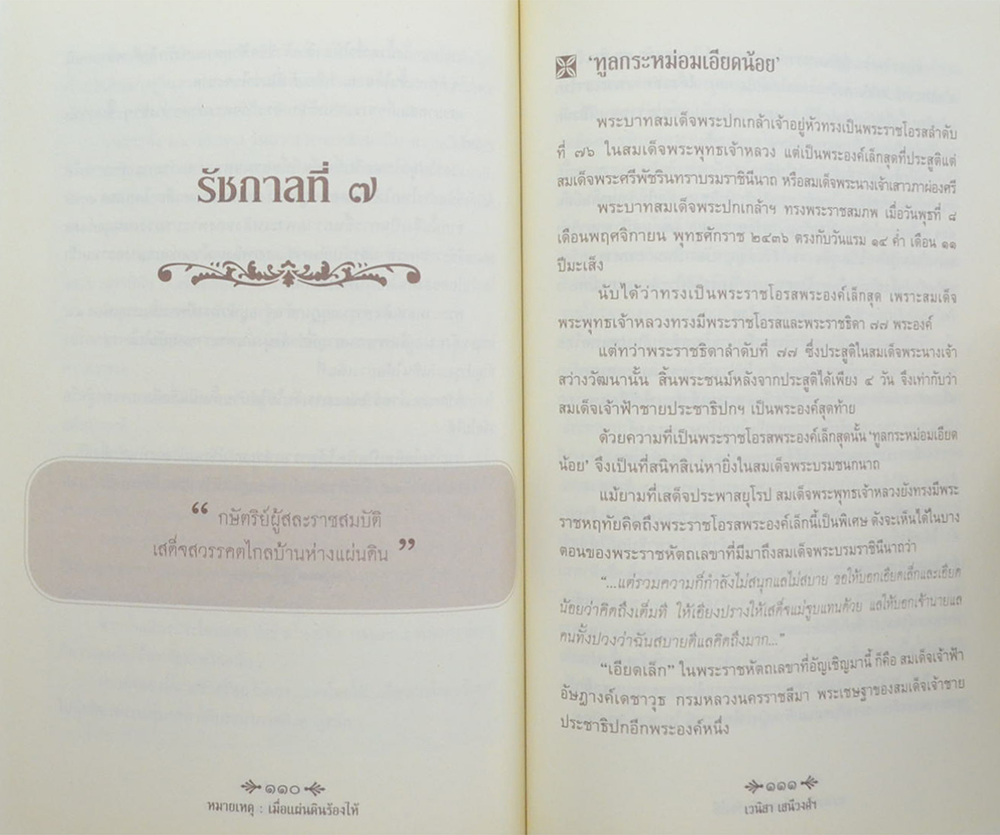 รัชกาลที่ ๗
“ กษัตริย์ผู้สละราชสมบัติ
เสด็จสวรรคตไกลบ้านห่างแผ่นดิน ”
๑๑๐
หมายเหตุ : เมื่อแผ่นดินร้องไห้
‘ทูลกระหม่อมเอียดน้อย’
พระบาทสมเด็จพระปกเกล้าเจ้าอยู่หัวทรงเป็นพระราชโอรสลำดับ
ที่ ๗๖ ในสมเด็จพระพุทธเจ้าหลวง แต่เป็นพระองค์เล็กสุดที่ประสูติแต่
สมเด็จพระศรีพัชรินทราบรมราชินีนาถ หรือสมเด็จพระนางเจ้าเสาวภาผ่องศรี
พระบาทสมเด็จพระปกเกล้าฯ ทรงพระราชสมภพ เมื่อวันพุธที่ ๘
เดือนพฤศจิกายน พุทธศักราช ๒๔๓๖ ตรงกับวันแรม ๑๔ ค่ำ เดือน ๑๑
ปีมะเส็ง
นับได้ว่าทรงเป็นพระราชโอรสพระองค์เล็กสุด เพราะสมเด็จ
พระพุทธเจ้าหลวงทรงมีพระราชโอรสและพระราชธิดา ๗๗ พระองค์
แต่ทว่าพระราชธิดาลำดับที่ ๗๗ ซึ่งประสูติในสมเด็จพระนางเจ้า
สว่างวัฒนานั้น สิ้นพระชนม์หลังจากประสูติได้เพียง ๔ วัน จึงเท่ากับว่า
สมเด็จเจ้าฟ้าชายประชาธิปกฯ เป็นพระองค์สุดท้าย
ด้วยความที่เป็นพระราชโอรสพระองค์เล็กสุดนั้น ‘ทูลกระหม่อมเอียด
น้อย’ จึงเป็นที่สนิทสิเน่หายิ่งในสมเด็จพระบรมชนกนาถ
แม้ยามที่เสด็จประพาสยุโรป สมเด็จพระพุทธเจ้าหลวงยังทรงมีพระ
ราชหฤทัยคิดถึงพระราชโอรสพระองค์เล็กนี้เป็นพิเศษ ดังจะเห็นได้ในบาง
ตอนของพระราชหัตถเลขาที่มีมาถึงสมเด็จพระบรมราชินีนาถว่า
“...แต่รวมความก็กำลังไม่สนุกแลไม่สบาย ขอให้บอกเอียดเล็กและเอียด
น้อยว่าคิดถึงเต็มที ให้เอียงปรางให้เสด็จแม่จูบแทนด้วย แลให้บอกเจ้านายแล
คนทั้งปวงว่าฉันสบายดีแลคิดถึงมาก...”
“เอียดเล็ก” ในพระราชหัตถเลขาที่อัญเชิญมานี้ ก็คือ สมเด็จเจ้าฟ้า
อัษฎางค์เดชาวุธ กรมหลวงนครราชสีมา พระเชษฐาของสมเด็จเจ้าชาย
ประชาธิปกอีกพระองค์หนึ่ง
๑๑๑
เวนิสา เสนีวงศ์ฯ